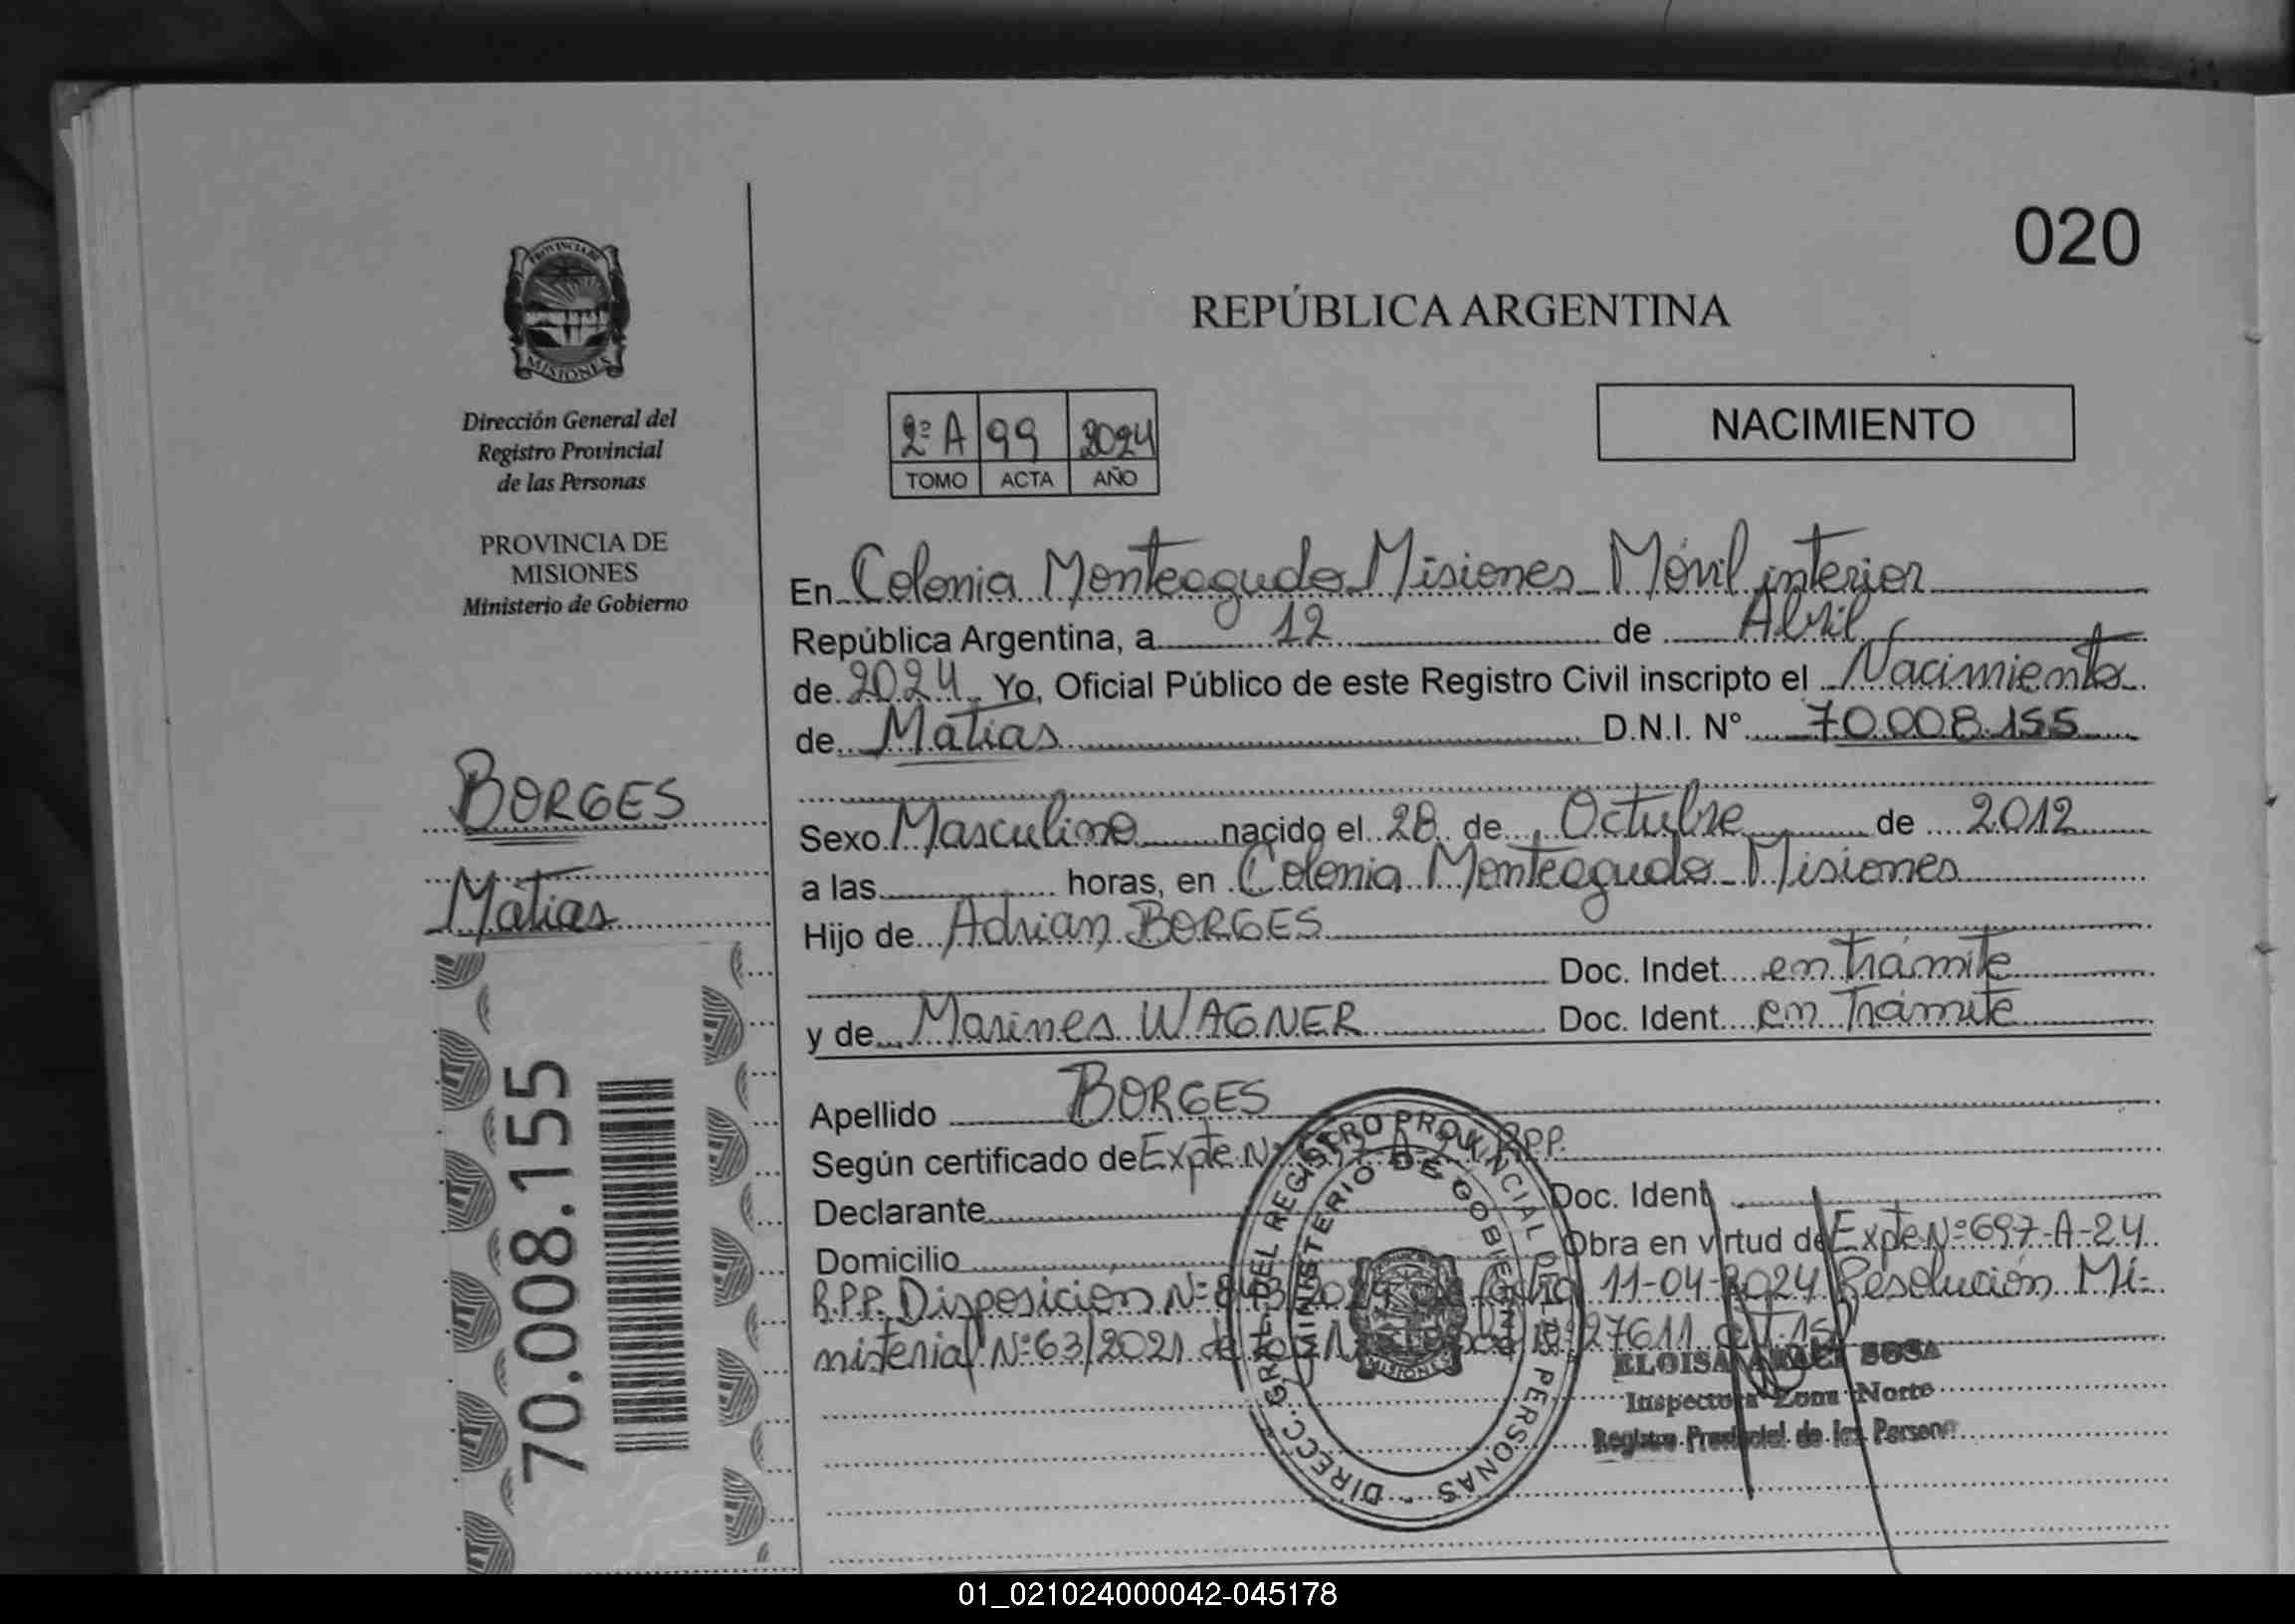 020
REPÚBLICA ARGENTINA
PROVINCIA DE
MISIONES
Dirección General del
Registro Provincial
de las Personas
PROVINCIA DE
MISIONES
Ministerio de Gobierno
2º A 99 2024
TOMO ACTA AÑO
NACIMIENTO
En Colonia Monteagudo Misiones Móvil interior
República Argentina, a 12 de Abril
de 2024 Yo, Oficial Público de este Registro Civil inscripto el Nacimiento
de Matias D.N.I. Nº 70.008.155
Sexo Masculino nacido el 28 de Octubre de 2012
a las horas, en Colonia Monteagudo Misiones
Hijo de Adrian BORGES
Doc. Indet. en trámite
y de Marines WAGNER Doc. Ident. en Trámite
Apellido BORGES
Según certificado de Expte Nº R.P.P.
Declarante Doc. Ident.
Domicilio Obra en virtud de Expte Nº 697-A-24
R.P.P. Disposición Nº 11-04-2024 Resolución Mi-
nisterial Nº 63/2021 de 27611 art. 15
BORGES
Matias
70.008.155
DIRECC. GRAL. DEL REGISTRO PROVINCIAL DE LAS PERSONAS
MINISTERIO DE GOBIERNO
MISIONES
ELOISA SOSA
Inspectora Zona Norte
Registro Provincial de las Personas
01_021024000042-045178